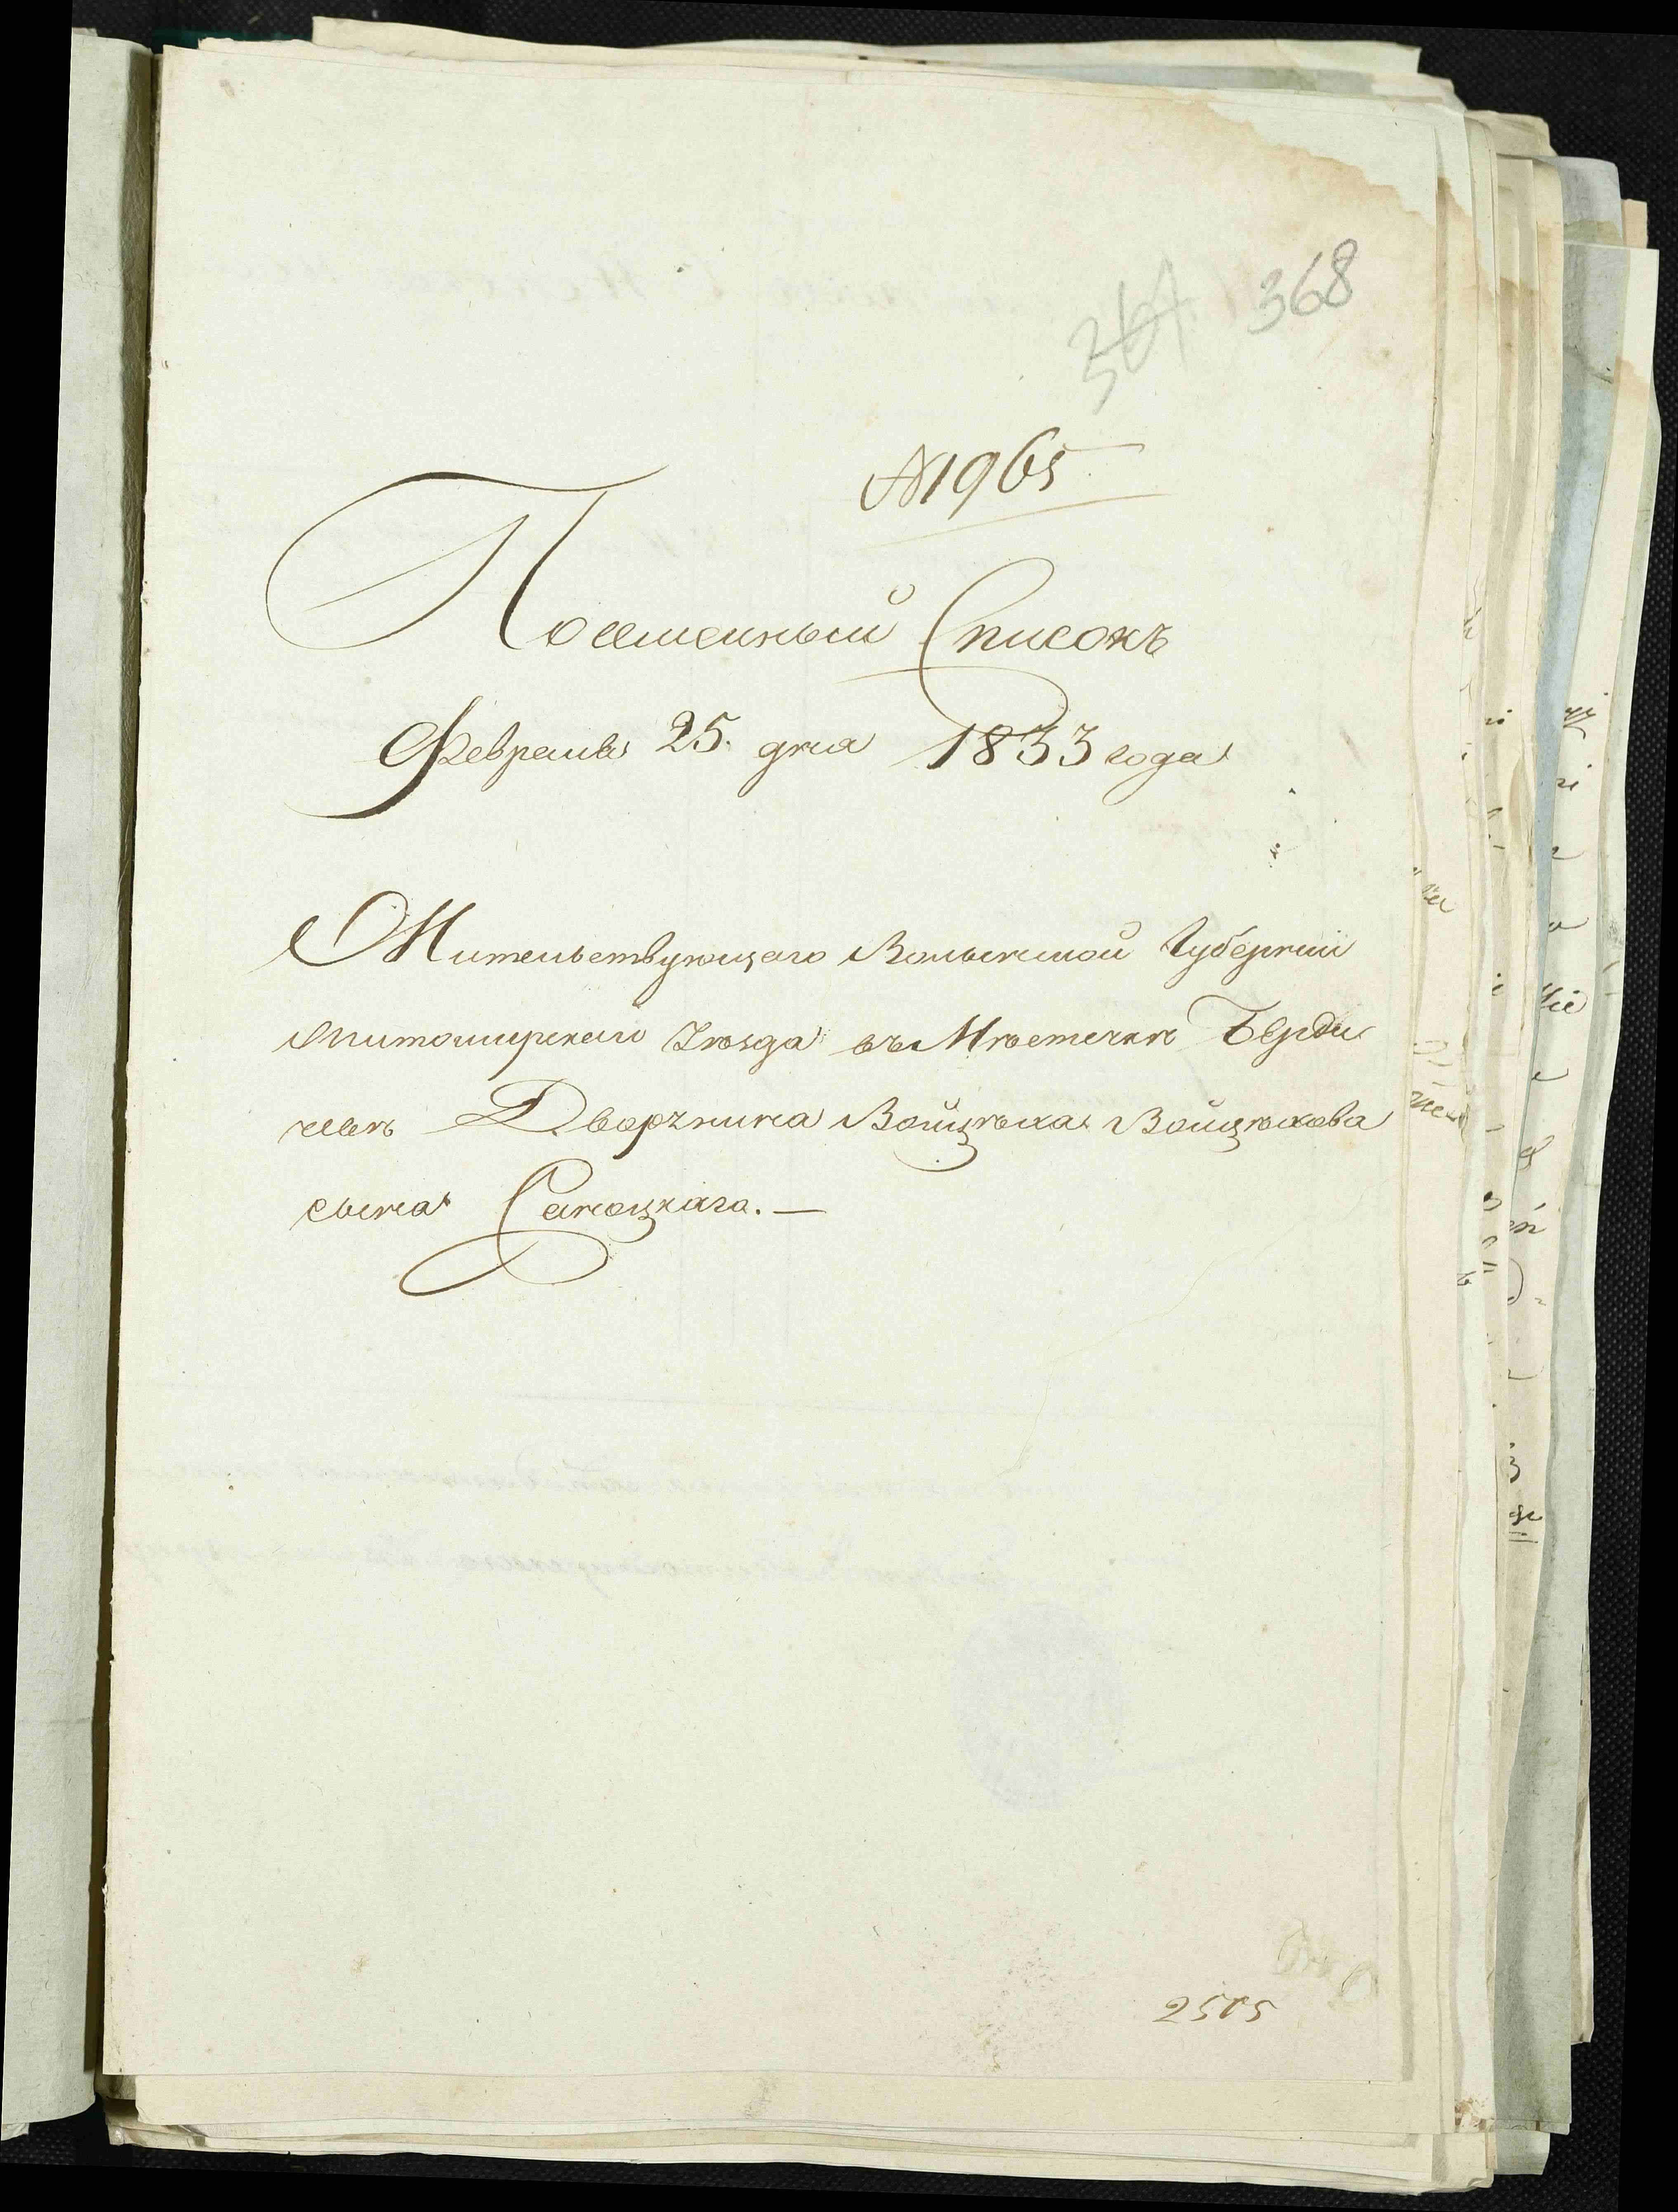 368
367
№ 1965
Поименный Списокъ
Февраля 25. дня 1833 года
Жительствующаго Волынской Губерніи
Житомирскаго Уѣзда въ Мѣстечкѣ Берди
чевѣ Дворянина Войцѣха Войцѣхова
сына Саноцкаго. —
2505